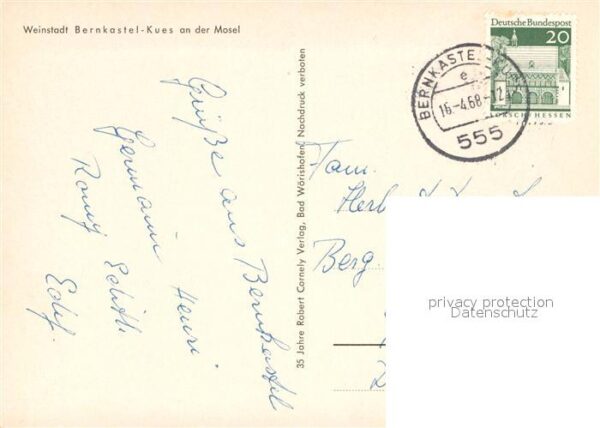 Weinstadt Bernkastel-Kues an der Mosel
Grüße aus Bernkastel
Germain Henri
Romy Edith
35 Jahre Robert Cornely Verlag, Bad Wörishofen, Nachdruck verboten
Deutsche Bundespost
20
LORSCH/HESSEN
BERNKASTEL
e
16.-4.68-12
555
Fam.
Berg
privacy protection
Datenschutz